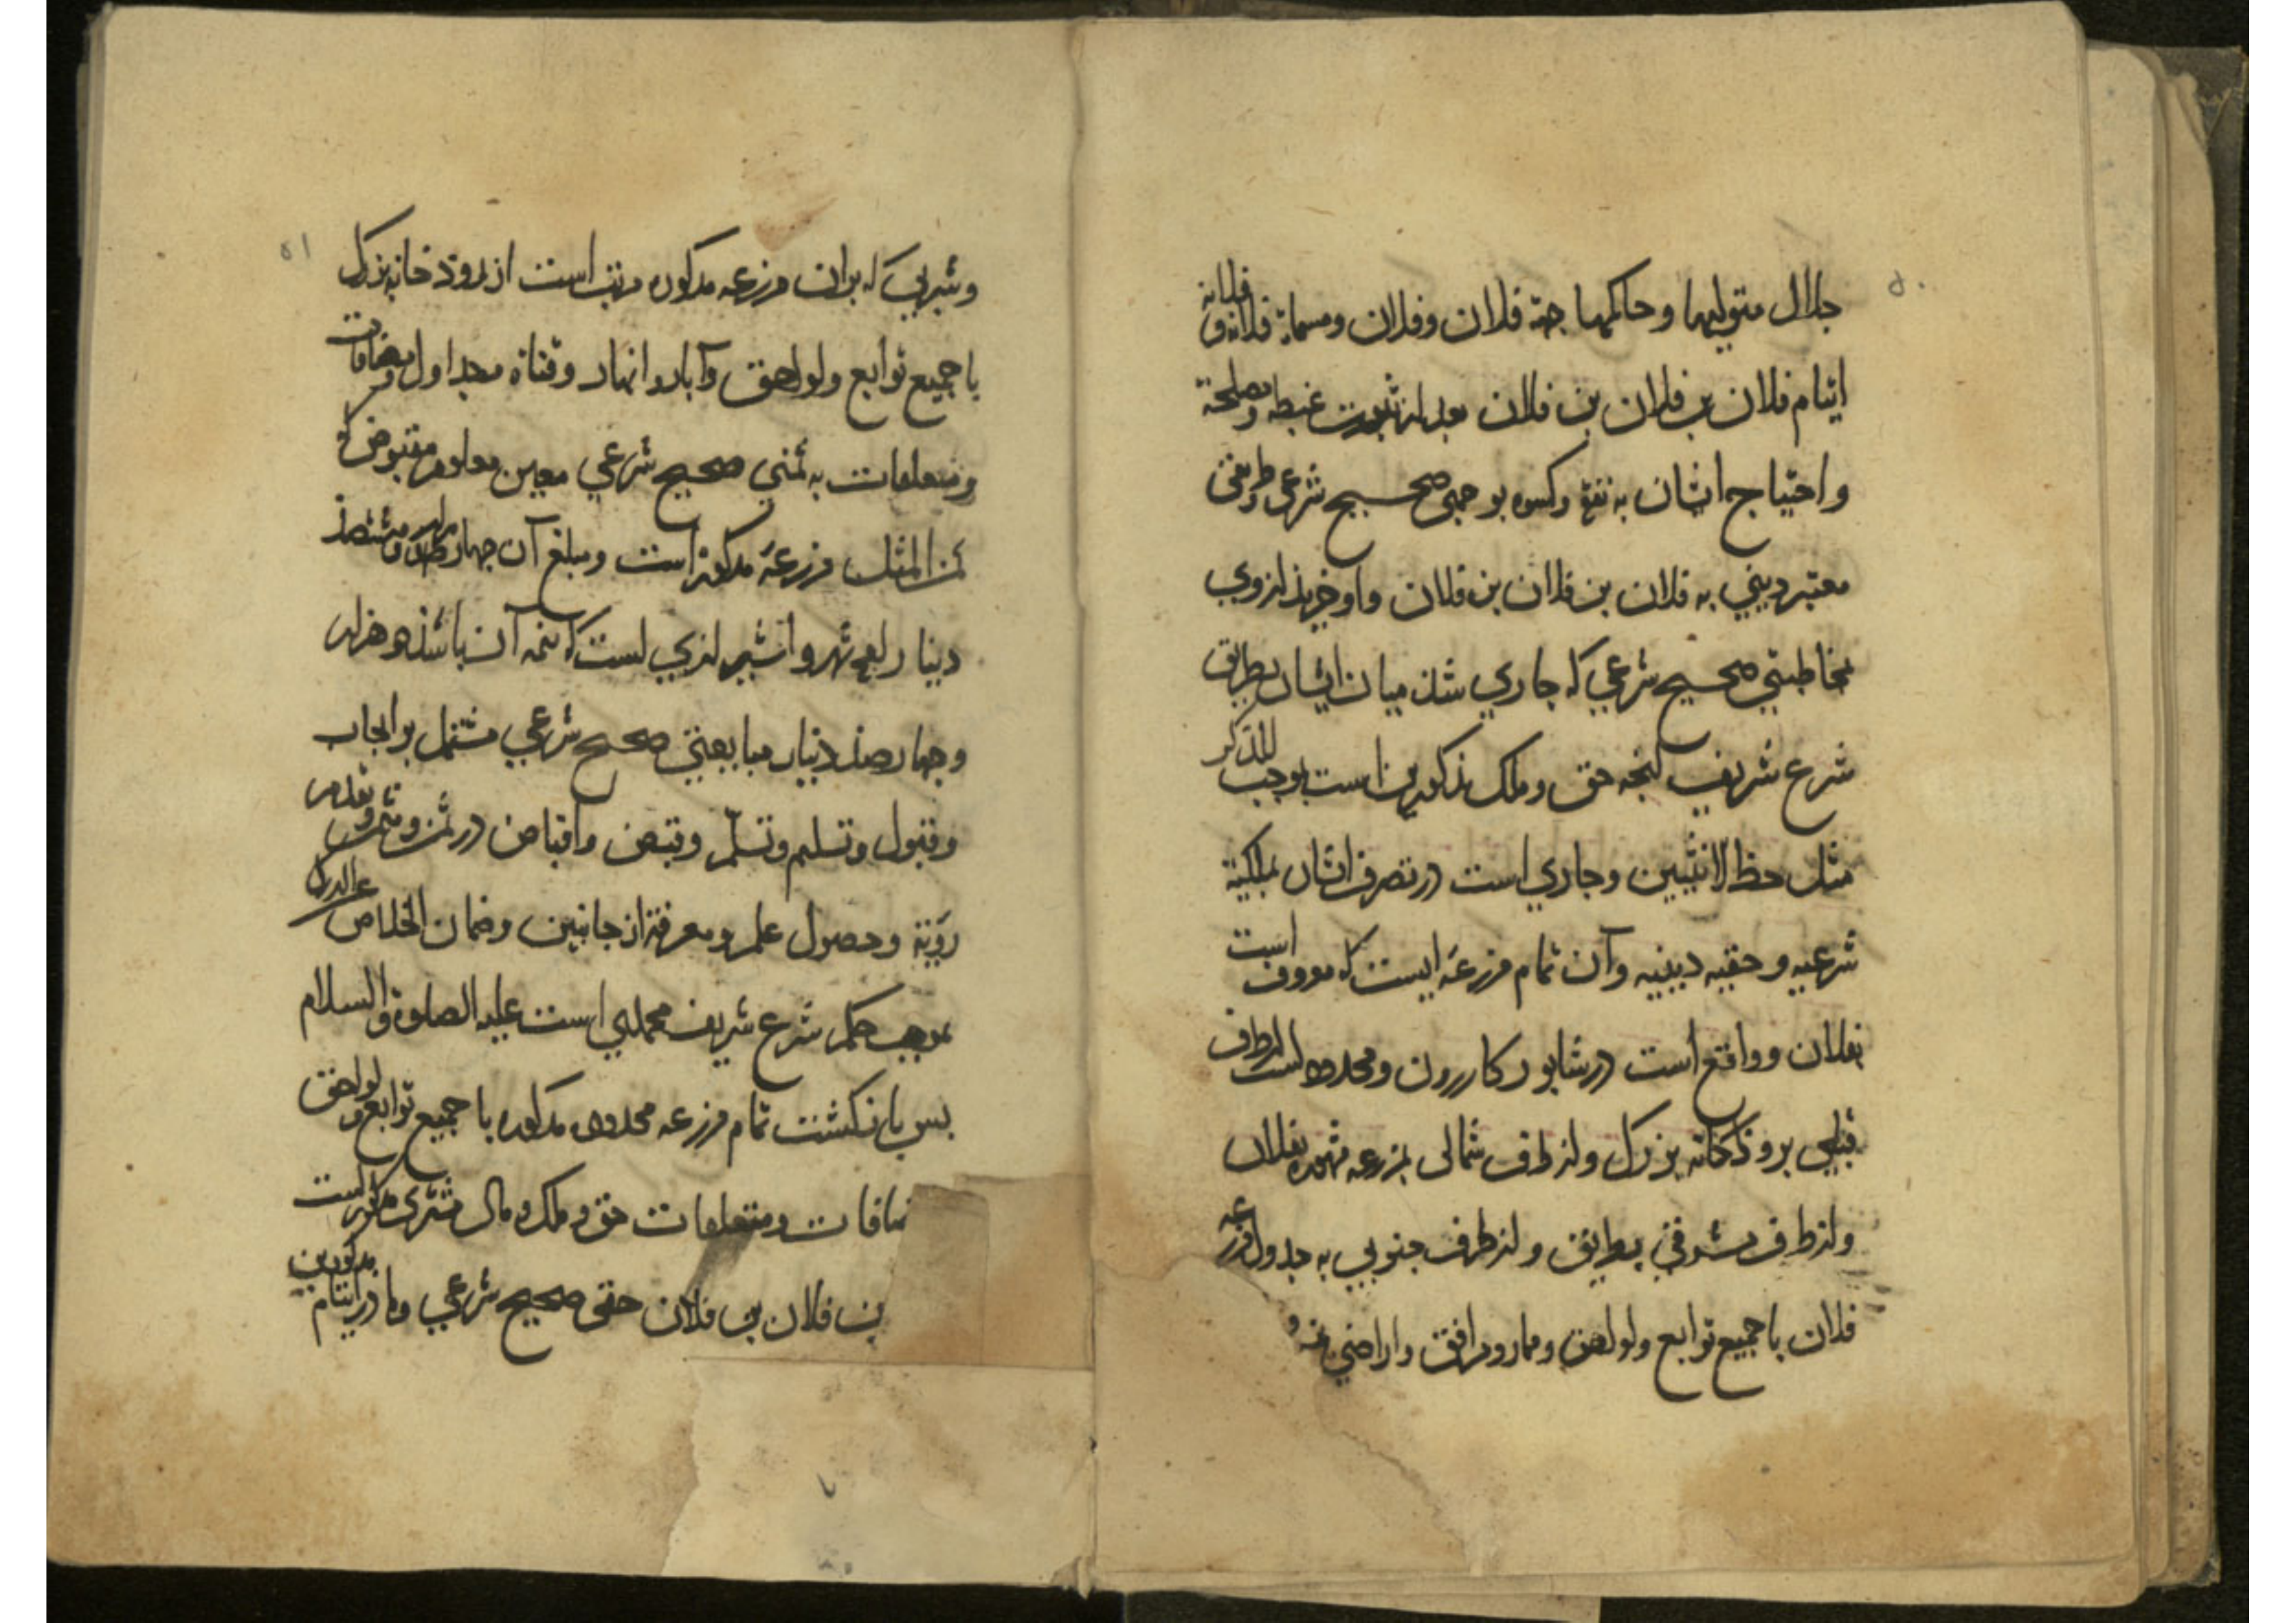 ٥٠
جلال متولیها و حاکمها جهة فلان وفلان ومسماة فلانه و فلانه
ایتام فلان بن فلان بن فلان بعد از ثبوت غبطه و مصلحة
و احتیاج ایشان به نفقة وکسوه بوجهی صحیح شرعی و طریقی
معتبر دینی به فلان بن فلان بن فلان واو خرید از وی
مخاطبتی صحیح شرعی که جاری شد میان ایشان بطریق
شرع شریف انچه حق وملک مذکورین است بموجب للذکر
مثل حظ الانثیین وجاری است در تصرف ایشان بملکیة
شرعیه و حقیه دینیه وآن تمام مزرعه ایست که معروف است
بفلان و واقع است در شابور کازرون ومحدود است از طرف
قبلی بروذخانه بزرک واز طرف شمالی بمزرعه مشهوره بفلان
واز طرف شرقی بطریق واز طرف جنوبی به جدول مزرعه
فلان با جمیع توابع ولواحق وممار ومرافق واراضی
٥١
وشربی که بران مزرعه مذکوره مرتب است از روذخانه بزرک
با جمیع توابع ولواحق وآبار وانهار وقناة وجداول ومضافات
ومتعلقات به ثمنی صحیح شرعی معین معلوم مقبوض که
ثمن المثل مزرعه مذکوره است ومبلغ آن چهار هزار وهشتصذ
دینار رایج شهر و شیرازی است که نیمه آن باشذ دو هزار
وچهارصذ دینار مبایعتی صحیح شرعی مشتمل بر ایجاب
وقبول وتسلیم وتسلّم وقبض واقباض در ثمن ومثمن وتقدم
رؤیة وحصول علم ومعرفة از جانبین وضمان الخلاص عن الدرک
بموجب حکم شرع شریف محمدی است علیه الصلوة والسلام
بس بازکشت تمام مزرعه محدوده مذکوره با جمیع توابع و لواحق
ضافات ومتعلقات حق وملک ومال مشتری مذکور است
بن فلان بن فلان حقی صحیح شرعی وما در ایتام مذکورین